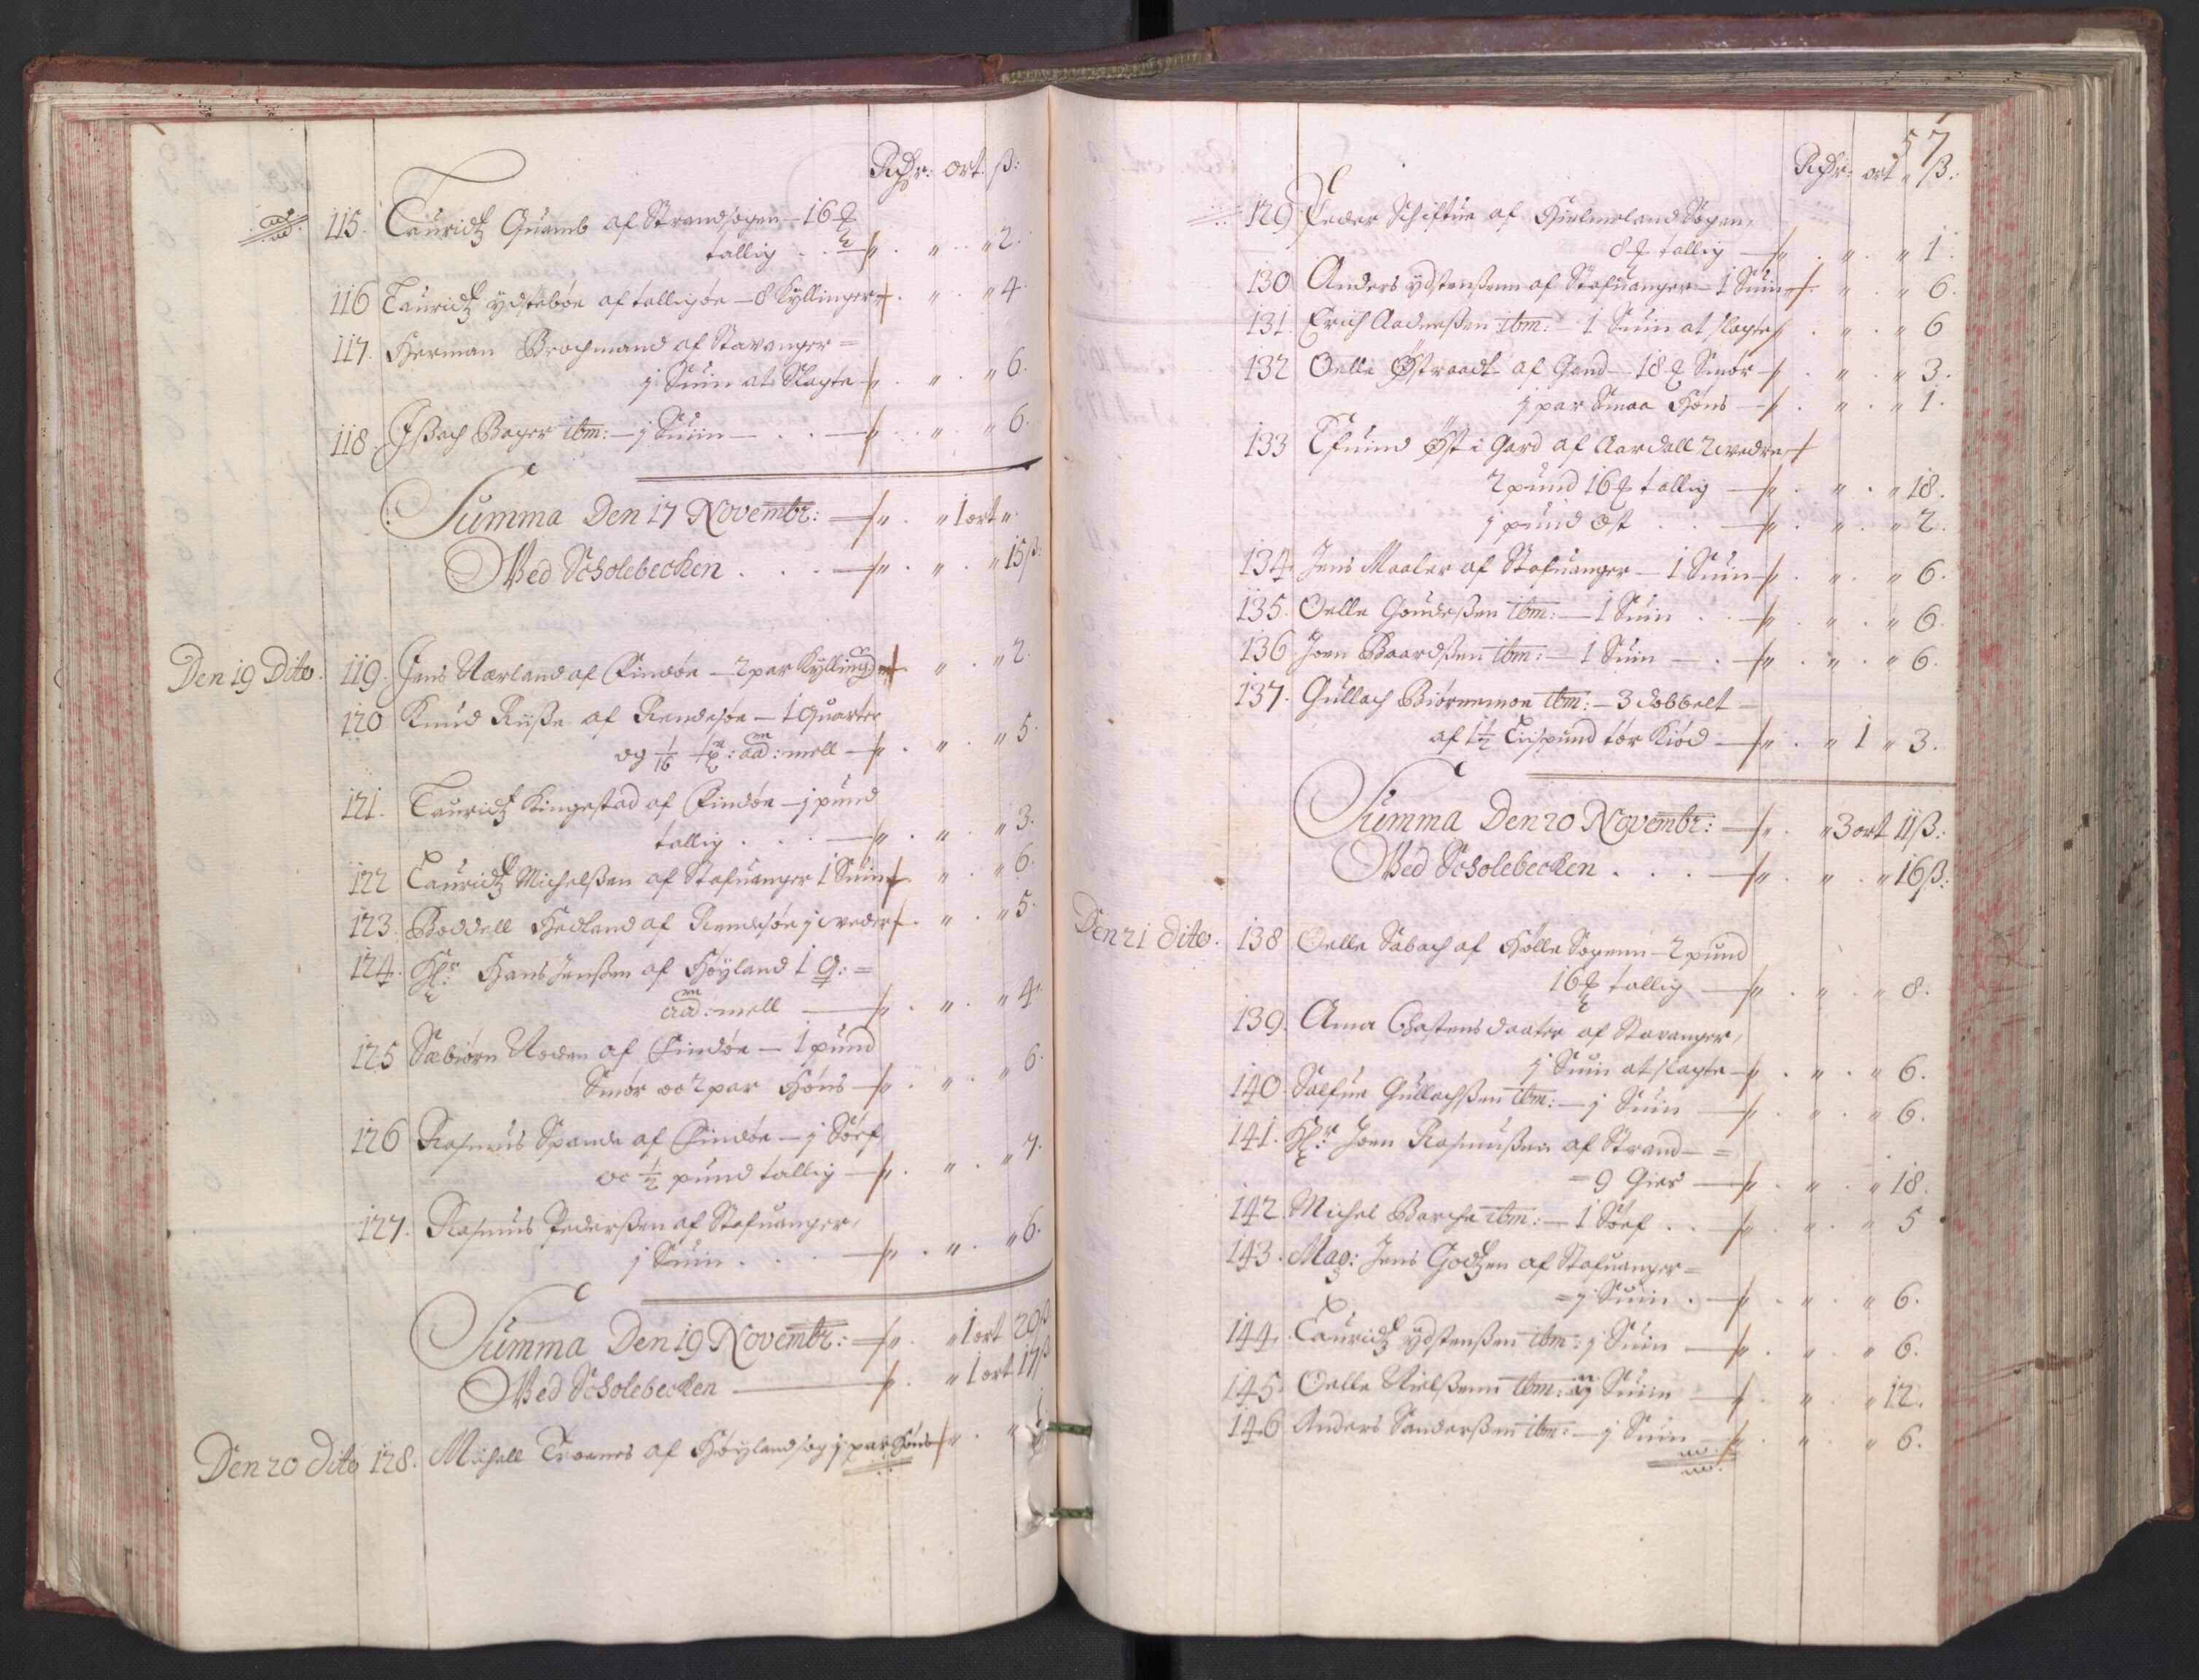 Rixdr: ort. ß:
115. Lauridtz Quamb af Strandsogen - 16 ℔
tallig . . — " . " . " 2.
116 Lauridtz ydstebøe af talligøe - 8 Kyllinger " . " . " 4.
117. Herman Brochmand af Stavanger =
j Suin at Slagte — " . " . " 6.
118. Isach Bager ibm: — j Suin — . . — " . " . " 6.
Summa Den 17 Novembr: — " . " 1 ort "
Wed Scholebechen . . . — " . " . " 15 ß:
Den 19 Dito. 119. Jens Nærland af Findøe — 2 par Kylling: " . " . " 2.
120 Knud Risse af Rendesøe — 1 Quarter
og 1/16 : ad: mell — " . " . " 5.
121. Lauridtz Kingestad af Findøe — j pund
tallig . . . — " . " . " 3.
122 Lauridtz Michelßen af Stafuanger 1 Suin " . " . " 6.
123. Boddell Hedland af Rendesøe j veder . " . " 5.
124. Hr: Hans Jenßen af Høyland 1 q: =
ad: mell — " . " . " 4.
125 Sæbiørn Noden af Findøe — 1 pund
Smør oc 2 par Høns — " . " . " 6.
126 Rasmus Spande af Findøe — j Søef
oc ½ pund tallig — " . " . " 7.
127. Rasmus Pederßen af Stafuanger,
j Suin . . . — " . " . " 6.
Summa Den 19 Novembr: — " . " 1 ort 20 ß
Wed Scholebechen — " . " 1 ort 17 ß
Den 20 dito 128. Michell Troenes af Høylandsog j par Høns " . " 1.
57
Rixdr: ort " ß:
129 Peder Schiftun af Hielmeland Sogen,
8 ℔ tallig — " . " . " 1.
130. Anders ydstenßenn af Stafuanger — 1 Suin " . " . " 6.
131. Erich Aadneßen ibm: — 1 Suin at slagte " . " . " 6
132 Oelle Østraadt af Gand — 18 ℔ Smør — " . " . " 3.
j par Smaa Høns — " . " . " 1.
133 Efuind Øst i Gard af Aardall 2 vedre
2 pund 16 ℔ tallig — " . " . " 18.
j pund ost . . — " . " . " 2.
134. Jens Maaler af Stafuanger — 1 Suin — " . " . " 6.
135. Oelle Goudeßen ibm: — 1 Suin . . — " . " . " 6.
136. Joen Baardßen ibm: — 1 Suin — . — " . " . " 6.
137. Gullach Biørnemoe ibm: — 3 dobbelt =
af 1½ Lispund tør Kiød — " . " 1 " 3.
Summa Den 20 Novembr: — " . " 3 ort 11 ß:
Wed Scholebechen . . . — " . " . " 16 ß:
Den 21 dito. 138 Oelle Sabach af Hølle Sogenn — 2 pund
16 ℔ tallig — " . " . " 8.
139. Anna Chastensdaater af Stavanger,
j Suin at slagte — " . " . " 6.
140. Salfue Gullachßen ibm: — j Suin — " . " . " 6.
141. Hr: Joen Rasmußen af Strand — =
= 9 Gies — " . " . " 18.
142. Michel Barche ibm: — 1 Søef . . — " . " . " 5
143. Mag: Jens Godtzen af Stafuanger =
= j Suin . — " . " . " 6.
144. Lauridtz ydstenßen ibm: j Suin — " . " . " 6.
145. Oelle Nielßenn ibm: ij Suin — " . " . " 12.
146 Anders Sanderßen ibm: — j Suin — " . " . " 6.